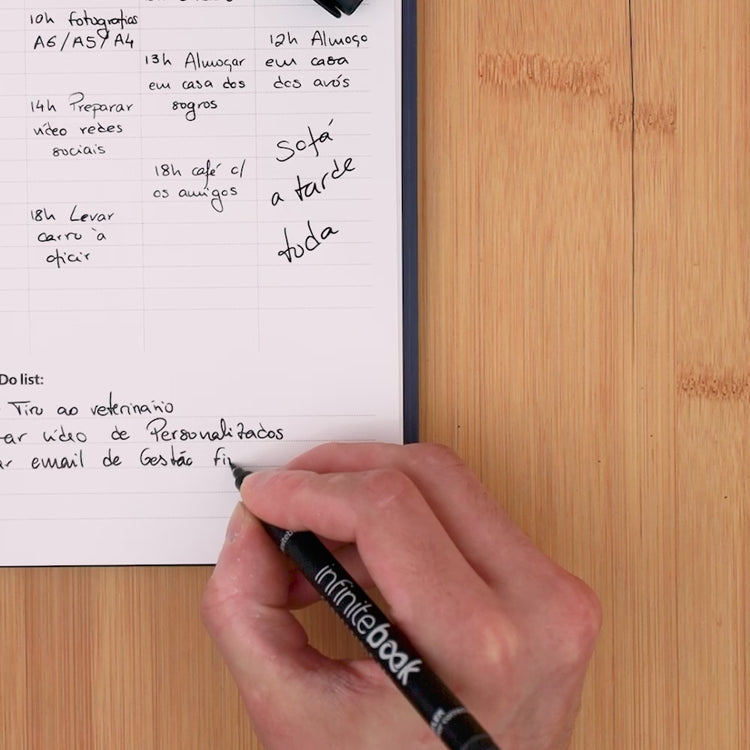 10h fotografias
A6/A5/A4
14h Preparar
vídeo redes
sociais
18h Levar
carro à
oficir
13h Almoçar
em casa dos
sogros
18h café c/
os amigos
12h Almoço
em casa
dos avós
Sofá
a tarde
toda
Do list:
Tiru ao veterinário
ar vídeo de Personalizados
ar email de Gestão fin
infinitebook